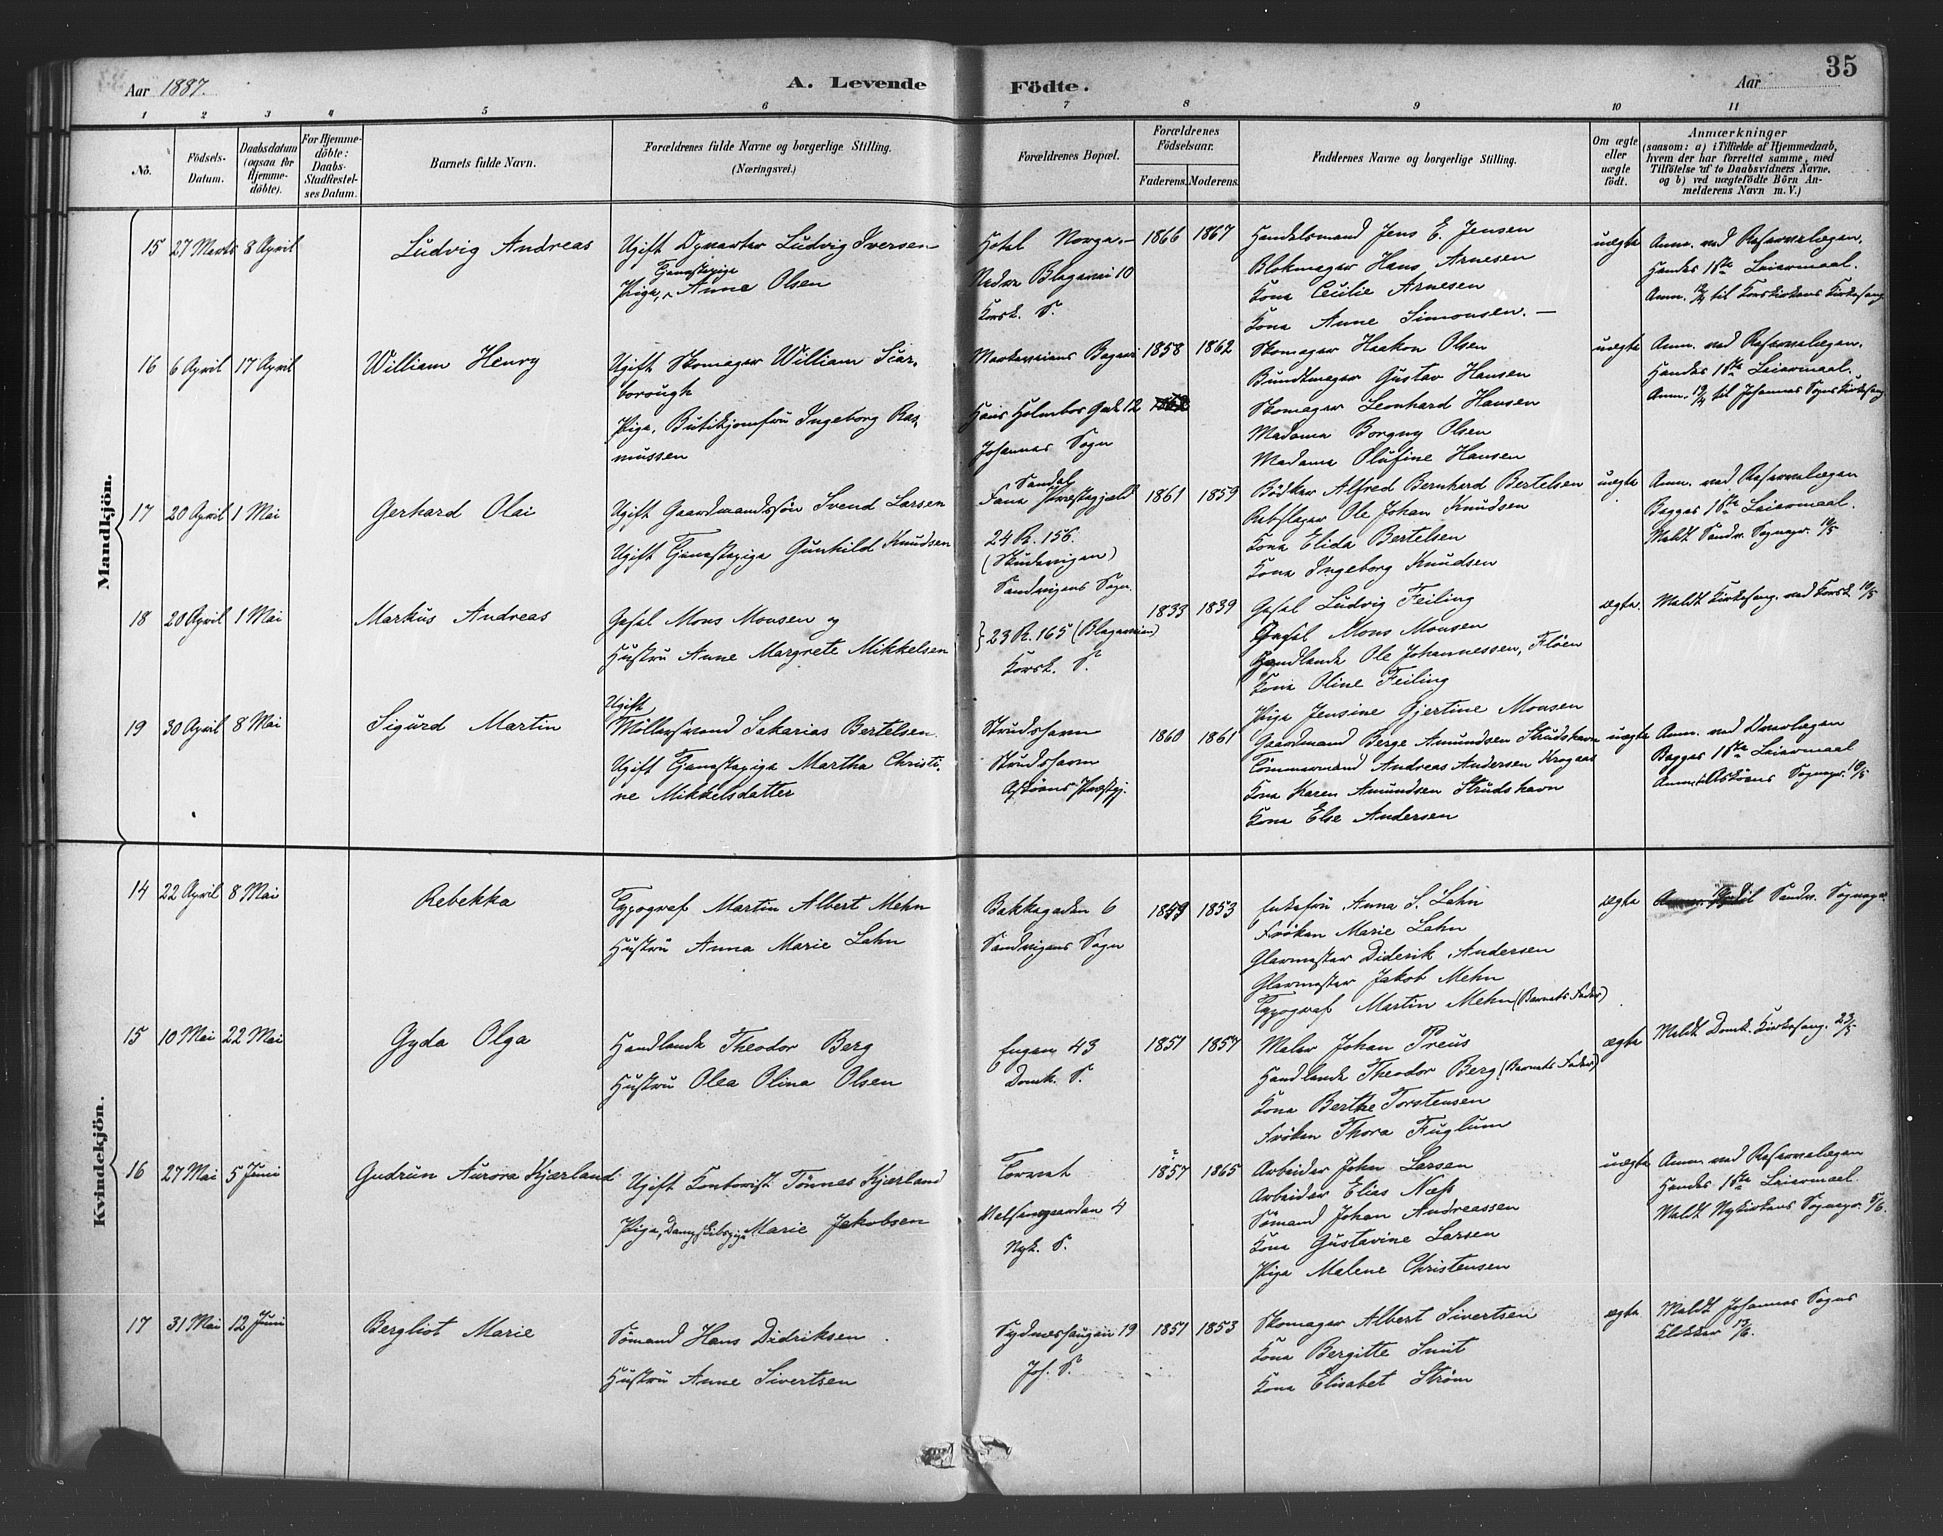 35
Aar 1887.
A. Levende Födte.
Aar
1 2 3 4 5 6 7 8 9 10 11
No.
Födsels-Datum.
Daabsdatum (ogsaa for Hjemme-döbte).
For Hjemme-döbte: Daabs-Stadfæstel-ses Datum.
Barnets fulde Navn.
Forældrenes fulde Navne og borgerlige Stilling. (Næringsvei.)
Forældrenes Bopæl.
Forældrenes Födselsaar.
Faderens. Moderens.
Faddernes Navne og borgerlige Stilling.
Om ægte eller uægte födt.
Anmærkninger
(saasom: a) i Tilfælde af Hjemmedaab,
hvem der har forrettet samme, med
Tilföielse af to Daabsvidners Navne.
og b) ved uægtefödte Börn An-
melderens Navn m. V.)
Mandkjön.
15 27 Marts 8 April
Ludvig Andreas
Ugift Ludvig Iversen
Pige, Tjenestepige Anne Olsen
Hotel Norge.—
Nedre Blegevei 10
Korsk. S.
1866 1867
Handelsmand Jens E. Jensen
Blokmager Hans Arnesen
Kona Cecilie Arnesen
Kona Anne Simonsen.—
uægte
Anm. ved Reservelægen.
Hendes 1ste Leiermaal.
Anm. til Korskirkens Kirkesang.
16 6 April 17 April
William Henry
Ugift Skomager William Scar-
borough
Pige, Butikjomfru Ingeborg Ras-
mussen
Hans Holmboes Gade 12
Johannes Sogn
1858 1862
Skomager Haakon Olsen
Bundtmager Gustav Hansen
Skomager Leonhard Hansen
Madame Borgny Olsen
Madame Olufine Hansen
uægte
Anm. ved Reservelægen.
Hendes 1ste Leiermaal.
Anm. til Johannes Sogns Kirkesang
17 20 April 1 Mai
Gerhard Olai
Ugift Gaardmandssön Svend Larsen
Ugift Tjenestepige Gunhild Knudsen
Fane Præstegjeld
24 R. 156.
(Skudevigen)
Sandvigens Sogn.
1861 1859
Bödker Alfred Bernhard Bertelsen
Rebslager Ole Johan Knudsen
Kona Elida Bertelsen
Kona Ingeborg Knudsen
uægte
Anm. ved Reservelægen
Begges 1ste Leiermaal.
Meldt Sandv. Sognepr. 10/5
18 20 April 1 Mai
Markus Andreas
Gesel Mons Monsen og
Hustru Anne Margrete Mikkelsen
23 R. 165 (Blegeveien)
Korsk. S.
1833 1839
Gesel Ludvig Feiling
Gesel Mons Monsen
Handlende Ole Johannessen, Flöen
Kona Oline Feiling
Pige Jensine Gjertine Monsen
ægte.
Meldt Kirkesang. ved Korsk. 10/5
19 30 April 8 Mai
Sigurd Martin
Ugift
Möllersvend Sakarias Bertelsen.
Ugift Tjenestepige Martha Christi-
ne Mikkelsdatter
Strudshavn
Strudshavn
Askøens Præstgj.
1860 1861
Gaardmand Berge Amundsen Strudshavn
Tömmermand Andreas Andersen Krogaas
Kona Karen Amundsen Strudshavn
Kona Else Andersen
uægte
Anm. ved
Begges 1ste Leiermaal
Anm. til Askøens Sognepr. 10/5
Kvindekjön.
14 22 April 8 Mai
Rebekka
Typograf Martin Albert Mehn
Hustru Anna Marie Lahn
Bakkegaden 6
Sandvigens Sogn
1859 1853
Enkefru Anna S. Lahn
Fröken Marie Lahn
Glarmester Diderik Andersen
Glarmester Jakob Mehn
Typograf Martin Mehn (Barnets Fader)
ægte
Sandv. Sognepr.
15 10 Mai 22 Mai
Gyda Olga
Handlende Theodor Berg
Hustru Olea Olina Olsen
Engen 43
Domk. S.
1851 1857
Maler Johan Preus
Handlende Theodor Berg (Barnets Fader)
Kona Berthe Torstensen
Fröken Thora Fuglum
ægte
Meldt Domk. Kirkesang. 23/5
16 27 Mai 5 Juni
Gudrun Aurora Kjærland
Ugift Kontorist Tönnes Kjærland
Pige, Dampskibspige Marie Jakobsen
Torvet
4
Nyk. S.
1857 1865
Arbeider John Larsen
Arbeider Elias Næss
Sömand Johan Andreassen
Kona Gustavine Larsen
Pige Malene Christensen
uægte
Anm. ved Reservelægen
Hendes 1ste Leiermaal.
Meldt Nykirkens Sognepr. 6/6.
17 31 Mai 12 Juni
Bergliot Marie
Sömand Hans Didriksen
Hustru Anne Sivertsen
Sydneshaugen 19
Joh. S.
1851 1853
Skomager Albert Sivertsen
Kona Bergitte Smit
Kona Elisabet Ström
ægte
Meldt Johannes Sogns
Klokker 13/6.